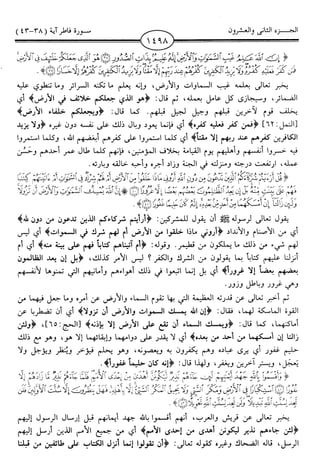 الجــزء الثاني والعشرون
١٤٩٨
سـورة فاطر آية (٣٨-٤٣)
﴿ إِنَّ اللَّهَ عَالِمُ غَيْبِ السَّمَوَاتِ وَالْأَرْضِ إِنَّهُ عَلِيمٌ بِذَاتِ الصُّدُورِ ﴿٣٨﴾ هُوَ الَّذِي جَعَلَكُمْ خَلَائِفَ
فِي الْأَرْضِ فَمَن كَفَرَ فَعَلَيْهِ كُفْرُهُ وَلَا يَزِيدُ الْكَافِرِينَ كُفْرُهُمْ عِندَ رَبِّهِمْ إِلَّا مَقْتًا وَلَا يَزِيدُ الْكَافِرِينَ كُفْرُهُمْ إِلَّا
خَسَارًا ﴿٣٩﴾ ﴾.
يخبر تعالى بعلمه غيب السماوات والأرض، وإنه يعلم ما تكنه السرائر وما تنطوي عليه
الضمائر، وسيجازي كل عامل بعمله، ثم قال: ﴿هو الذي جعلكم خلائف في الأرض﴾ أي
يخلف قوم لآخرين قبلهم وجيل لجيل قبلهم. كما قال: ﴿ويجعلكم خلفاء الأرض﴾
[النمل: ٦٢] ﴿فمن كفر فعليه كفره﴾ أي فإنما يعود وبال ذلك على نفسه دون غيره ﴿ولا يزيد
الكافرين كفرهم عند ربهم إلا مقتاً﴾ أي كلما استمروا على كفرهم أبغضهم الله، وكلما استمروا
فيه خسروا أنفسهم وأهليهم يوم القيامة بخلاف المؤمنين، فإنهم كلما طال عمر أحدهم وحَسُن
عمله، ارتفعت درجته ومنزلته في الجنة وزاد أجره وأحبه خالقه وبارئه.
﴿ قُلْ أَرَأَيْتُمْ شُرَكَاءَكُمُ الَّذِينَ تَدْعُونَ مِن دُونِ اللَّهِ أَرُونِي مَاذَا خَلَقُوا مِنَ الْأَرْضِ أَمْ لَهُمْ شِرْكٌ فِي السَّمَوَاتِ أَمْ آتَيْنَاهُمْ كِتَابًا
فَهُمْ عَلَى بَيِّنَتٍ مِّنْهُ بَلْ إِن يَعِدُ الظَّالِمُونَ بَعْضُهُم بَعْضًا إِلَّا غُرُورًا ﴿٤٠﴾ إِنَّ اللَّهَ يُمْسِكُ السَّمَوَاتِ وَالْأَرْضَ أَن تَزُولَا
وَلَئِن زَالَتَا إِنْ أَمْسَكَهُمَا مِنْ أَحَدٍ مِّن بَعْدِهِ إِنَّهُ كَانَ حَلِيمًا غَفُورًا ﴿٤١﴾ ﴾.
يقول تعالى لرسوله ﷺ أن يقول للمشركين: ﴿أرأيتم شركاءكم الذين تدعون من دون الله﴾
أي من الأصنام والأنداد ﴿أروني ماذا خلقوا من الأرض أم لهم شرك في السموات﴾ أي ليس
لهم شيء من ذلك ما يملكون من قطمير. وقوله: ﴿أم آتيناهم كتاباً فهم على بينة منه﴾ أي أم
أنزلنا عليهم كتاباً بما يقولون من الشرك والكفر؟ ليس الأمر كذلك، ﴿بل إن يعد الظالمون
بعضهم بعضاً إلا غروراً﴾ أي بل إنما اتبعوا في ذلك أهواءهم وأمانيهم التي تمنوها لأنفسهم
وهي غرور وباطل وزور.
ثم أخبر تعالى عن قدرته العظيمة التي بها تقوم السماء والأرض عن أمره وما جعل فيهما من
القوة الماسكة لهما، فقال: ﴿إن الله يمسك السموات والأرض أن تزولا﴾ أي أن تضطربا عن
أماكنهما، كما قال: ﴿ويمسك السماء أن تقع على الأرض إلا بإذنه﴾ [الحج: ٦٥]، ﴿ولئن
زالتا إن أمسكهما من أحد من بعده﴾ أي لا يقدر على دوامهما وإبقائهما إلا هو، وهو مع ذلك
حليم غفور أي يرى عباده وهم يكفرون به ويعصونه، وهو يحلم فيؤخر ويُنظر ويؤجل ولا
يُعجِّل، ويستر آخرين ويغفر، ولهذا قال: ﴿إنه كان حليماً غفوراً﴾.
﴿ وَأَقْسَمُوا بِاللَّهِ جَهْدَ أَيْمَانِهِمْ لَئِن جَاءَهُمْ نَذِيرٌ لَّيَكُونُنَّ أَهْدَى مِنْ إِحْدَى الْأُمَمِ فَلَمَّا جَاءَهُمْ نَذِيرٌ مَّا زَادَهُمْ إِلَّا
نُفُورًا ﴿٤٢﴾ اسْتِكْبَارًا فِي الْأَرْضِ وَمَكْرَ السَّيِّئِ وَلَا يَحِيقُ الْمَكْرُ السَّيِّئُ إِلَّا بِأَهْلِهِ فَهَلْ يَنظُرُونَ إِلَّا سُنَّتَ الْأَوَّلِينَ
فَلَن تَجِدَ لِسُنَّتِ اللَّهِ تَبْدِيلًا وَلَن تَجِدَ لِسُنَّتِ اللَّهِ تَحْوِيلًا ﴿٤٣﴾ ﴾.
يخبر تعالى عن قريش والعرب، أنهم أقسموا بالله جهد أيمانهم قبل إرسال الرسول إليهم
﴿لئن جاءهم نذير ليكونن أهدى من إحدى الأمم﴾ أي من جميع الأمم الذين أرسل إليهم
الرسل، قاله الضحاك وغيره كقوله تعالى: ﴿أن تقولوا إنما أنزل الكتاب على طائفتين من قبلنا